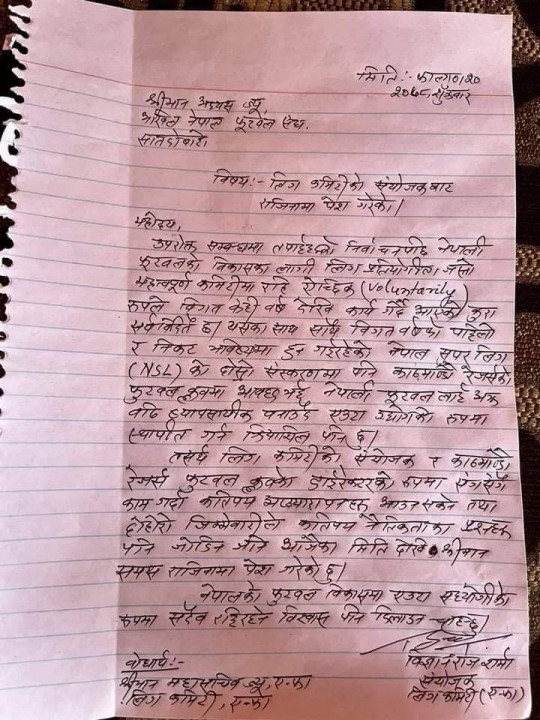 मिति:- फाल्गुण २०
२०७८ शुक्रबार
श्रीमान अध्यक्ष ज्यू,
अखिल नेपाल फुटबल संघ,
सातदोबाटो।
विषय:- लिग कमिटीको संयोजकबाट
राजिनामा पेश गरेको।
महोदय,
उपरोक्त सम्बन्धमा तपाईहरुको निर्वाचनपछि नेपाली
फुटबलको विकासका लागी लिग प्रतियोगिता जस्तो
महत्वपूर्ण कमिटीमा रहि स्वेच्छिक (Voluntarily)
रुपले विगत केही वर्ष देखि कार्य गर्दै आएको कुरा
सर्व विदितै छ। यसका साथ साथै विगत वर्षको पहिलो
र निकट भविष्यमा हुन गईरहेको नेपाल सुपर लिग
(NSL) को दोस्रो संस्करणमा पनि काठमाण्डौ रेजर्सको
फुटबल क्लबमा आवद्ध भई नेपाली फुटबल लाई अझ
बढि व्यापसायीक बनाउँदै एउटा उद्योगको रुपमा
स्थापीत गर्न क्रियाशिल पनि छु।
तसर्थ लिग कमिटीको संयोजक र काठमाण्डौ
रेजर्स फुटबल क्लबको डाईरेक्टरको रुपमा संगसंगै
काम गर्दा कतिपय अप्ठ्यारापनहरु आउन सक्ने तथा
दोहोरो जिम्मेवारीले कतिपय नैतिकताका प्रश्नहरु
पनि जोडिने भएकोले आजैका मिति देखि श्रीमान
समक्ष राजिनामा पेश गरेको छु।
नेपालको फुटबल विकासमा एउटा सहयोगीको
रुपमा सदैव रहिरहने विश्वास पनि दिलाउन चाहन्छु।
बोधार्थ:-
श्रीमान महासचिव ज्यू, ए-फा
लिग कमिटी, ए-फा
विज्ञानराज शर्मा
संयोजक
लिग कमिटी (ए-फा)